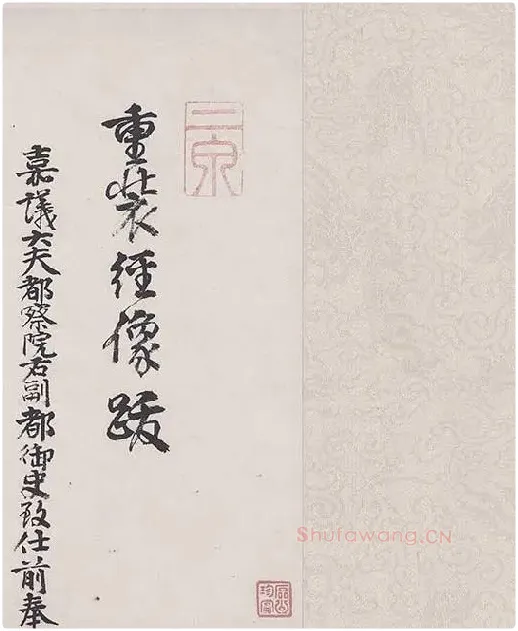 重裝經像跋
嘉議大夫都察院右副都御史致仕前奉
Shufawang.CN